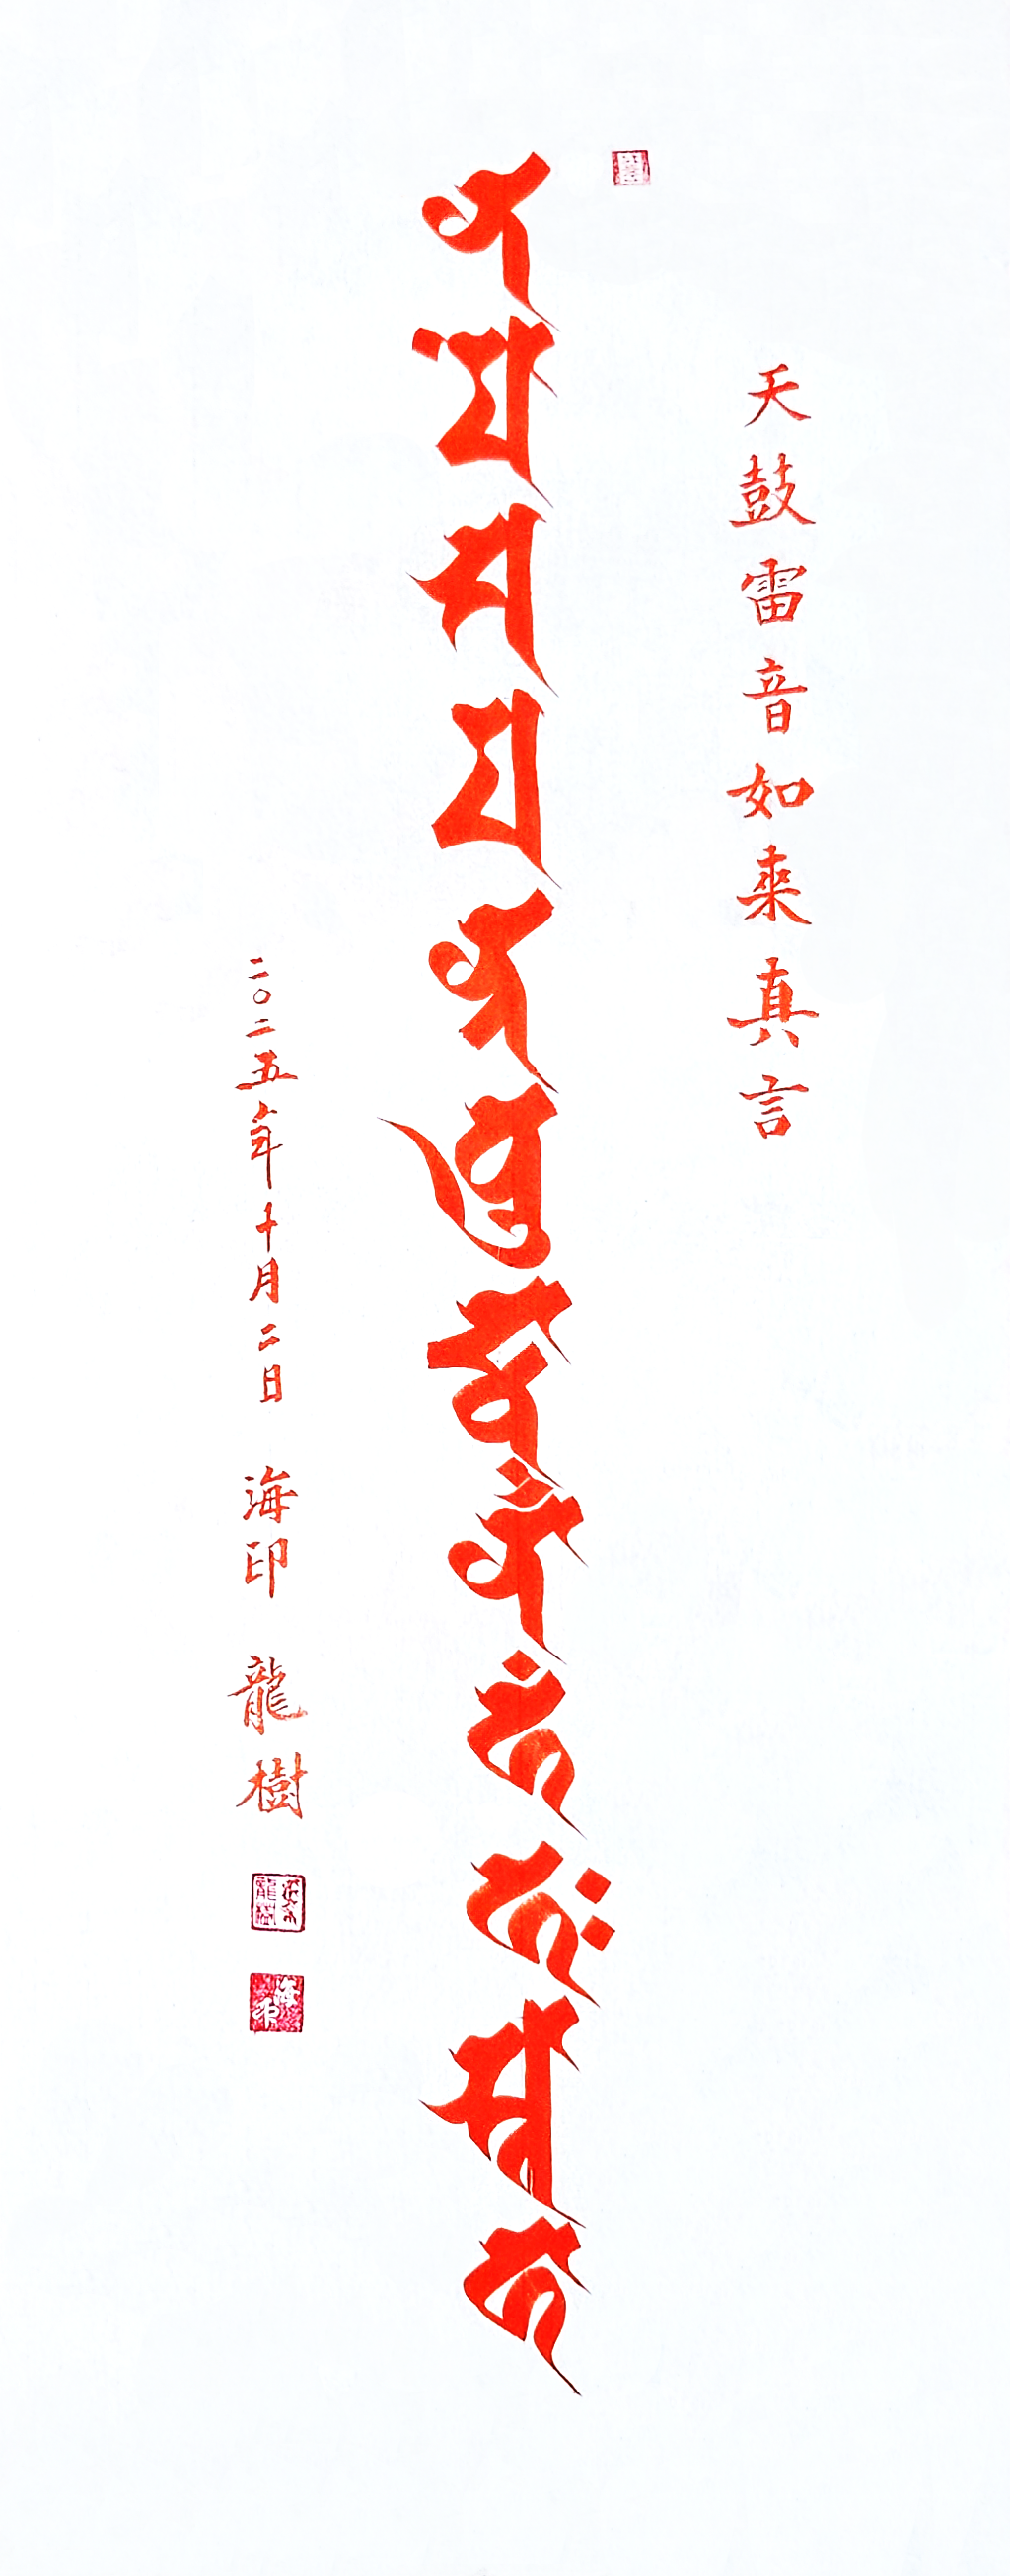 天鼓雷音如來真言
𑖡𑖦𑖾𑖭𑖦𑖡𑖿𑖝𑖤𑖲𑖟𑖿𑖠𑖯𑖡𑖯𑖽𑖮𑖽𑖮𑖾𑖭𑖿𑖪𑖯𑖮𑖯
二〇二五年十月二日 海印 龍樹